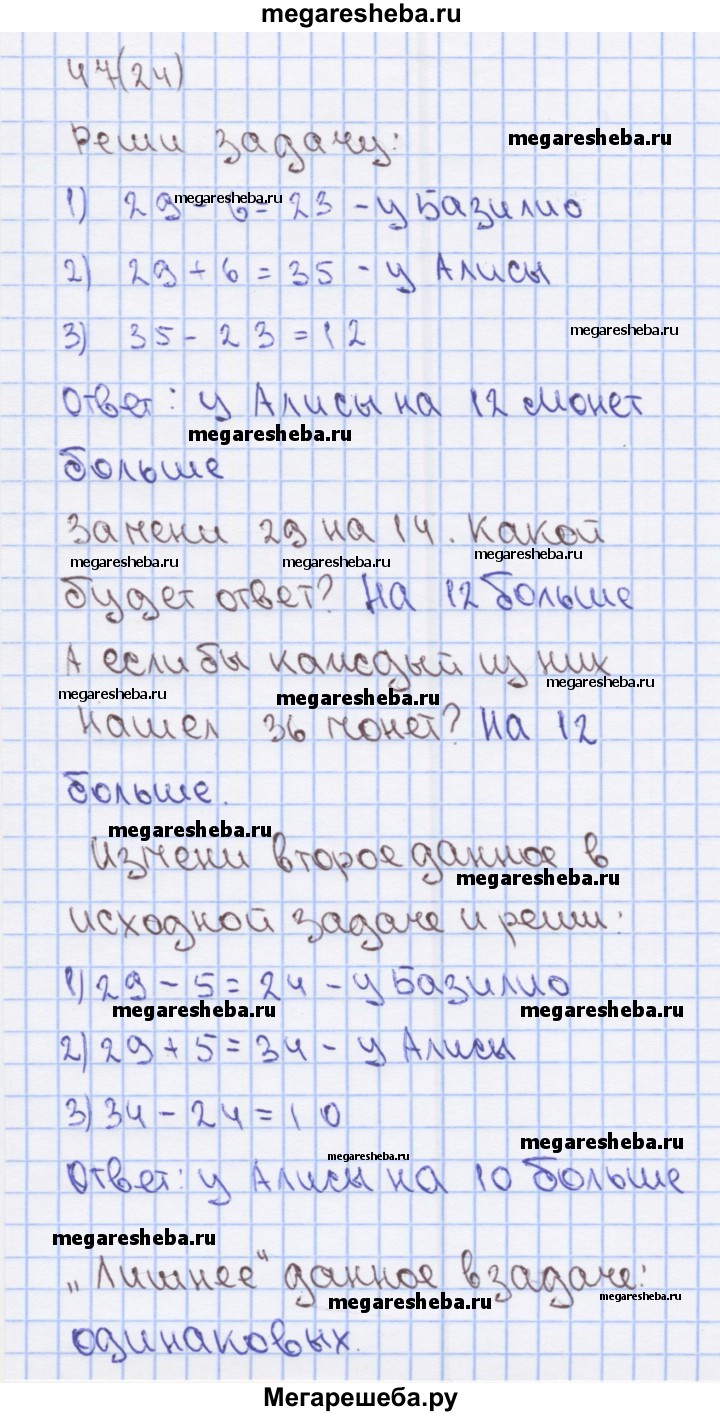 megaresheba.ru
47(24)
Реши задачу:
megaresheba.ru
1) 29 - 6 = 23 - у Базилио
megaresheba.ru
2) 29 + 6 = 35 - у Алисы
3) 35 - 23 = 12
megaresheba.ru
Ответ: у Алисы на 12 монет
megaresheba.ru
больше
Замени 29 на 14. Какой
megaresheba.ru megaresheba.ru megaresheba.ru
будет ответ? На 12 больше
А если бы каждый из них
megaresheba.ru megaresheba.ru megaresheba.ru
нашел 36 монет? На 12
больше.
megaresheba.ru
Измени второе данное в
megaresheba.ru
исходной задаче и реши:
1) 29 - 5 = 24 - у Базилио
megaresheba.ru megaresheba.ru
2) 29 + 5 = 34 - у Алисы
3) 34 - 24 = 10
megaresheba.ru
megaresheba.ru
Ответ: у Алисы на 10 больше
megaresheba.ru
„Лишнее“ данное в задаче:
megaresheba.ru megaresheba.ru
одинаковых.
Мегарешеба.ру